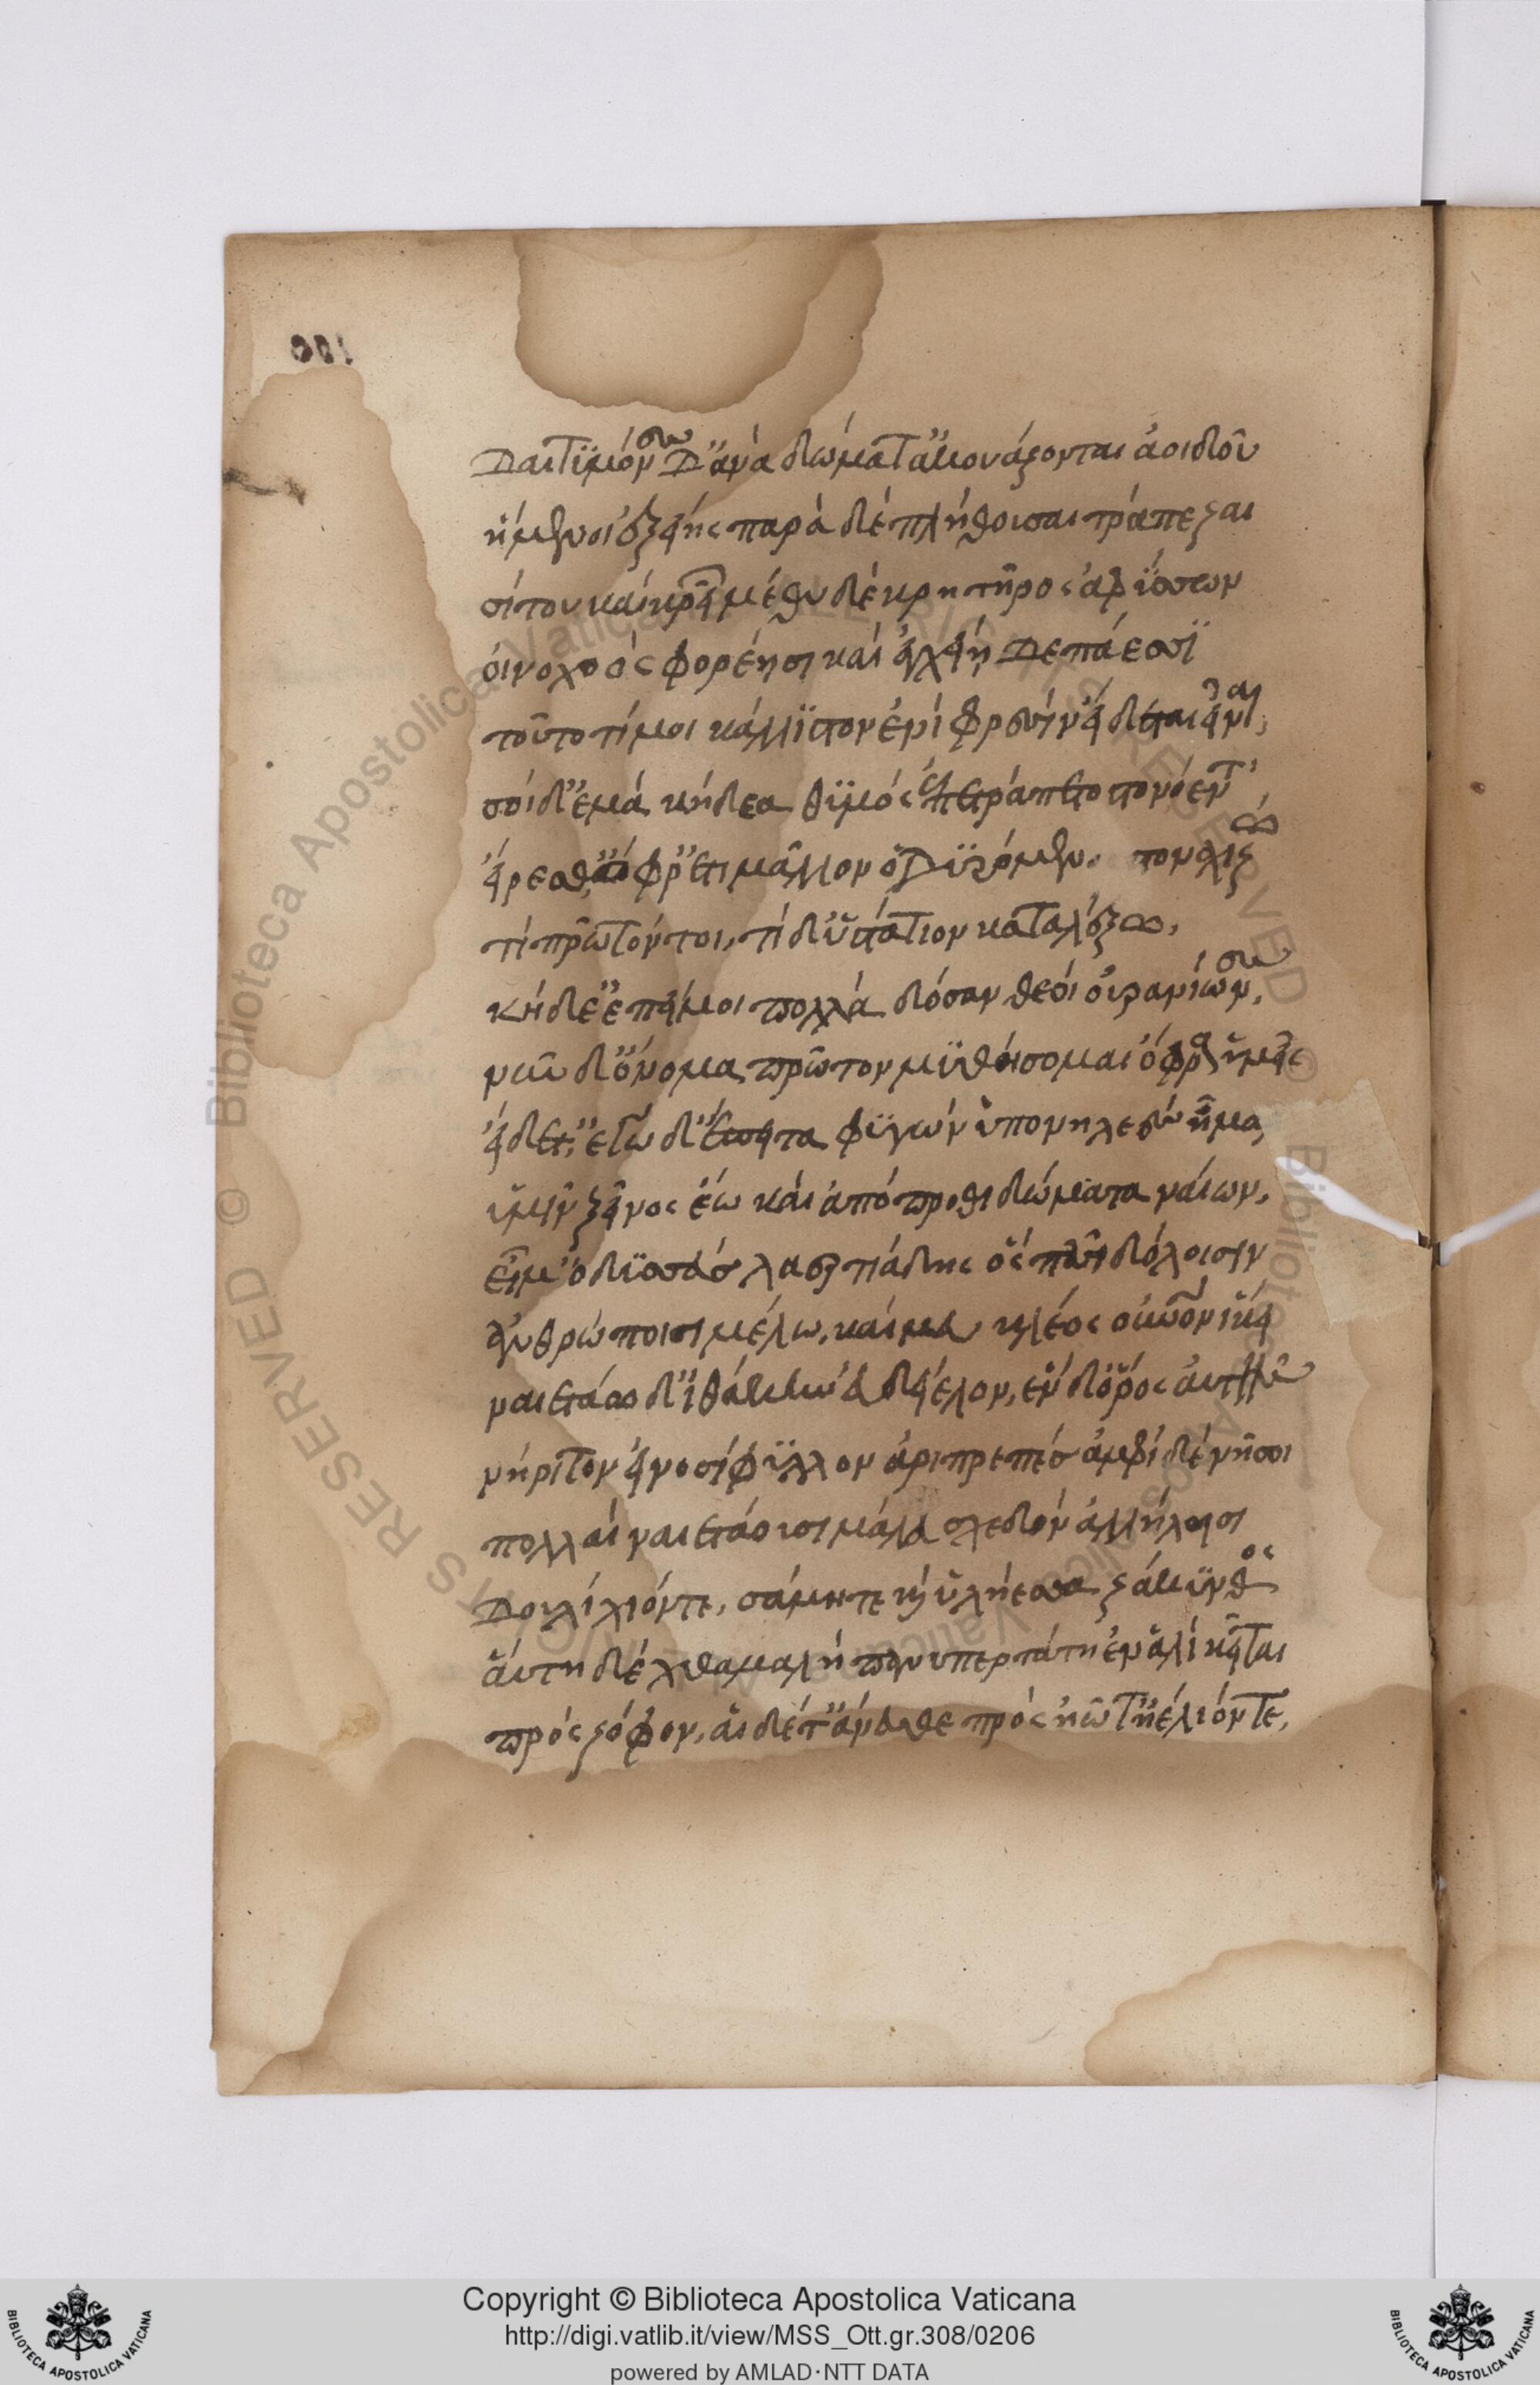 δαιτυμόνες δ' ἀνὰ δώματ' ἀκουάζονται ἀοιδοῦ
ἥμενοι ἑξείης παρὰ δὲ πλήθουσαι τράπεζαι
σίτου καὶ κρειῶν μέθυ δὲ κρητῆρος ἀφύσσων
οἰνοχόος φορέησι καὶ ἐγχείη δεπάεσσι
τοῦτο τί μοι κάλλιστον ἐνὶ φρεσὶν εἴδεται εἶναι,
σοὶ δ' ἐμὰ κήδεα θυμὸς ἐπετράπετο στονόεντ'
εἴρεσθ', ὄφρ' ἔτι μᾶλλον ὀδυρόμενος στοναχίζω
τί πρῶτόν τοι, τί δ' ὑστάτιον καταλέξω,
κήδε' ἐπεί μοι πολλὰ δόσαν θεοὶ οὐρανίωνες,
νῦν δ' ὄνομα πρῶτον μυθήσομαι ὄφρα καὶ ὑμεῖς
εἴδετ', ἐγὼ δ' ἔπειτα φυγὼν ὑπὸ νηλεὲς ἦμαρ
ὑμῖν ξεῖνος ἔω καὶ ἀπόπροθι δώματα ναίων,
εἴμ' ὀδυσσεὺς λαερτιάδης ὃς πᾶσι δόλοισιν
ἀνθρώποισι μέλω, καί μευ κλέος οὐρανὸν ἵκει
ναιετάω δ' ἰθάκην εὐδείελον, ἐν δ' ὄρος αὐτῇ
νήριτον εἰνοσίφυλλον ἀριπρεπές ἀμφὶ δὲ νῆσοι
πολλαὶ ναιετάουσι μάλα σχεδὸν ἀλλήλῃσι
δουλίχιόν τε, σάμη τε καὶ ὑλήεσσα ζάκυνθος
αὐτὴ δὲ χθαμαλὴ πανυπερτάτη εἰν ἁλὶ κεῖται
πρὸς ζόφον, αἱ δέ τ' ἄνευθε πρὸς ἠῶ τ' ἠέλιόν τε,
Copyright © Biblioteca Apostolica Vaticana
http://digi.vatlib.it/view/MSS_Ott.gr.308/0206
powered by AMLAD·NTT DATA